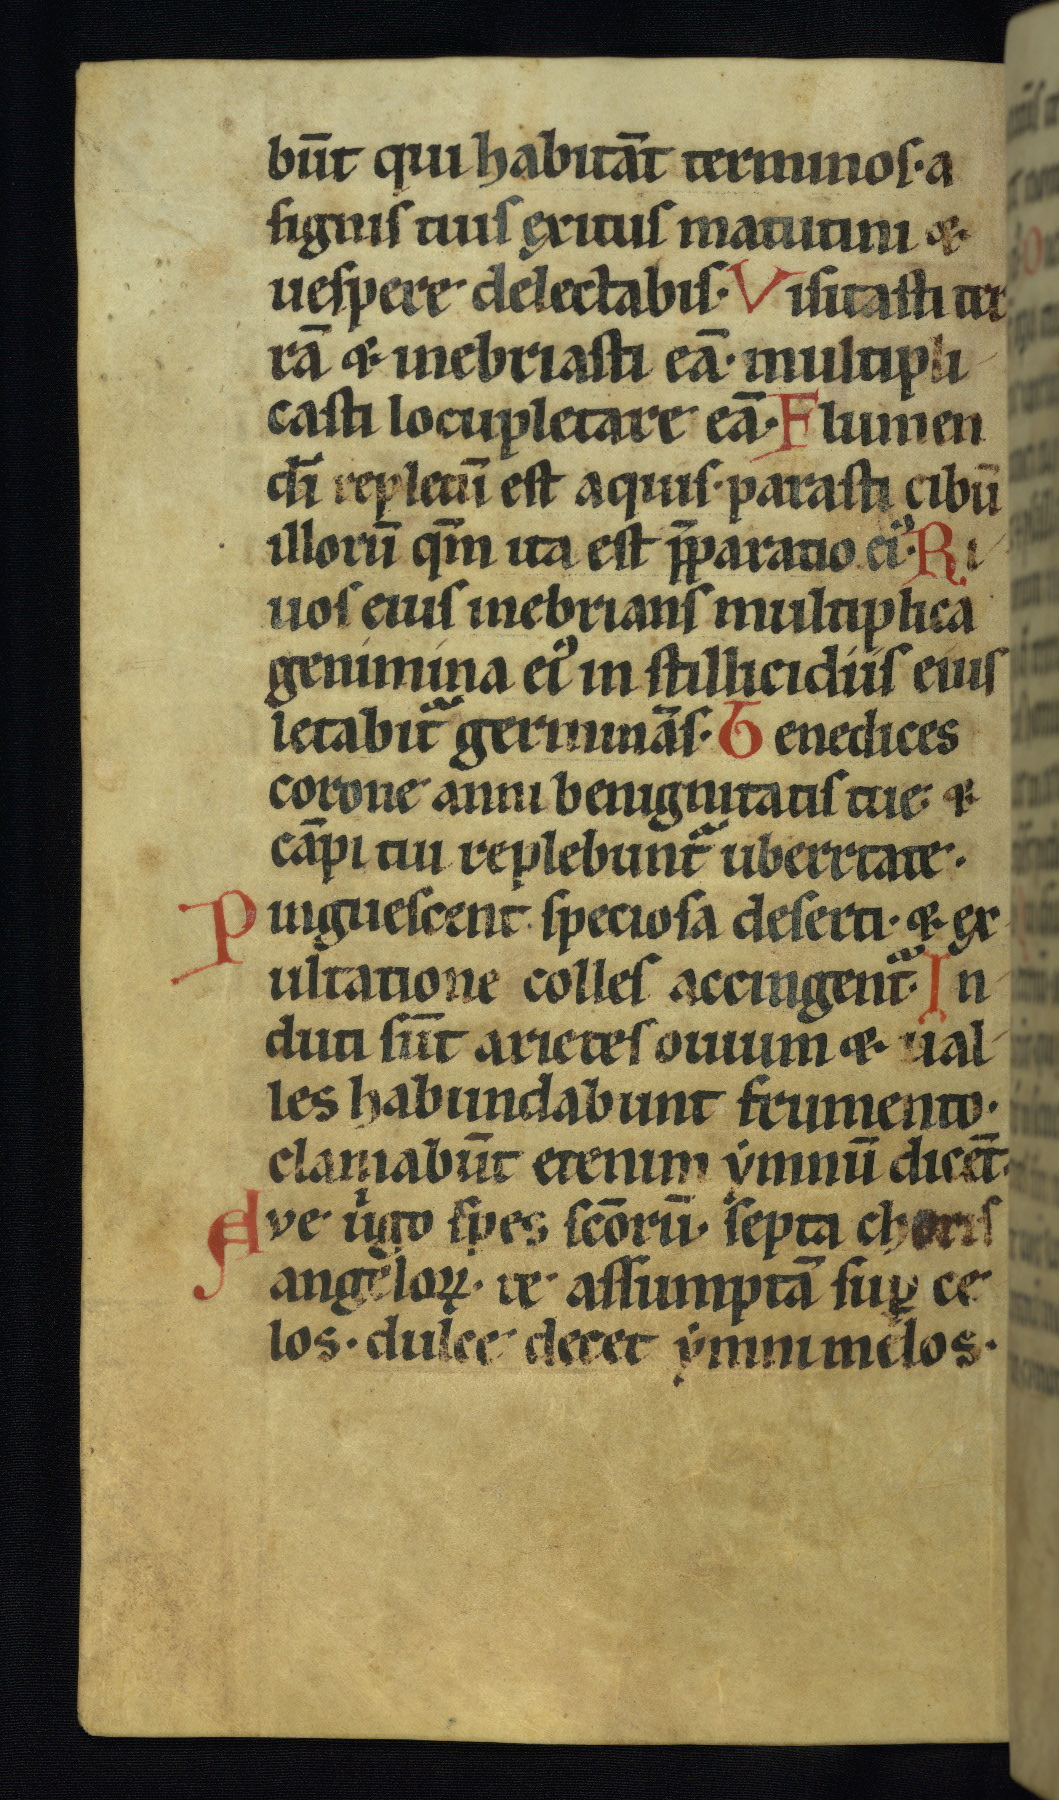 bu̅t qui habita̅t terminos· a
signis tuis exitus matutini &
uespere delectabis· Visitasti ter
ra̅ & inebriasti ea̅· multipli
casti locupletare ea̅· Flumen
di̅ repletu̅ est aquis· parasti cibu̅
illoru̅ qm̅ ita est p̅paratio eiꝰ· Ri
uos eius inebrians multiplica
genimina eiꝰ in stillicidiis eius
letabit᷑ germina̅s· Benedices
corone anni benignitatis tue· &
ca̅pi tui replebunt᷑ uberrtate·
Pinguescent speciosa deserti· & ex
ultatione colles accingent᷑· In
duti su̅t arietes ouium & ual
les habundabunt frumento·
clamabu̅t etenim ẏmnu̅ dice̅t·
Ave uͥgo spes sc̅oru̅· septa choris
angeloꝝ· te assumpta̅ suꝑ ce
los· dulce decet ẏmni melos·